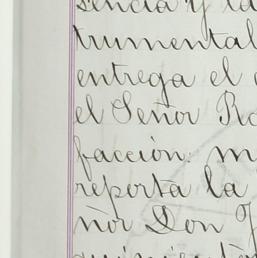 sencia y la
trumental
entrega el
el Señor Ro
facción: m
reporta la
ñor Don J